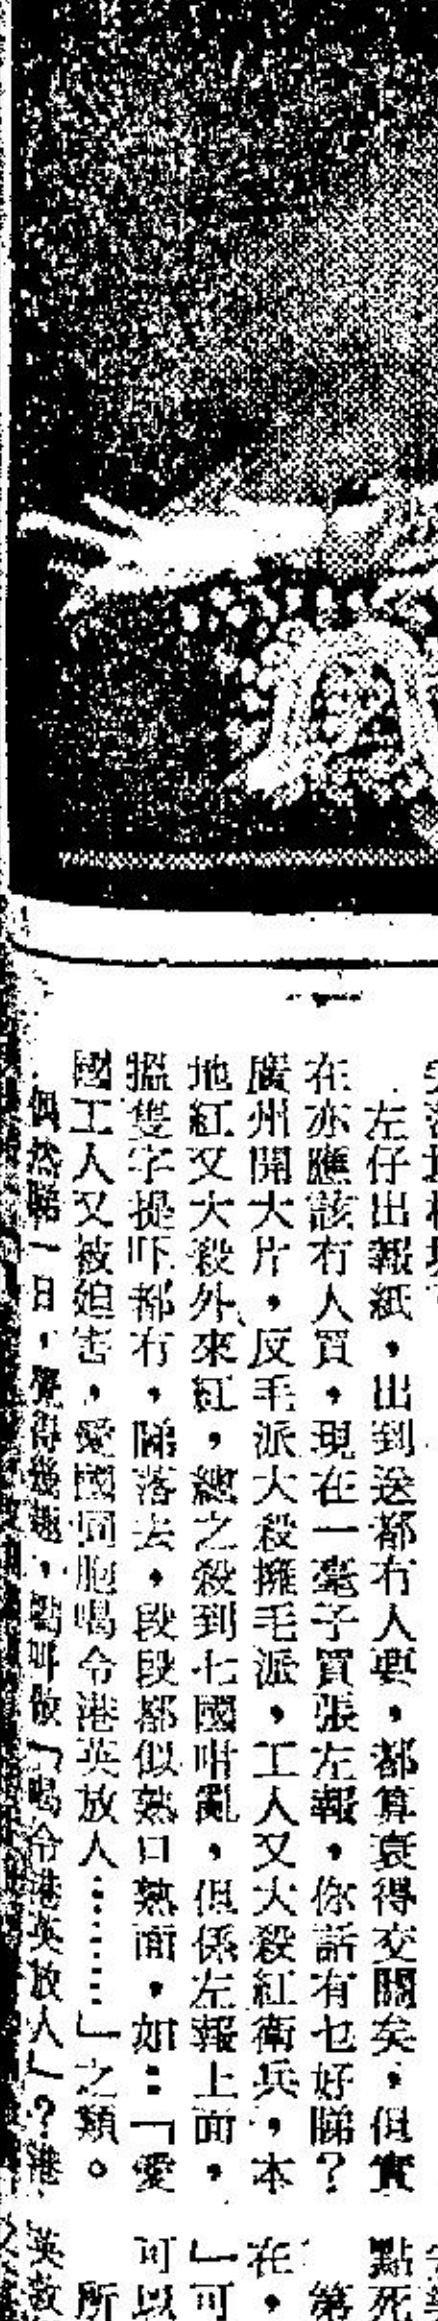 左仔出報紙，出到送都冇人要，都算衰得交關矣，但實
在亦應該冇人買，現在一毫子買張左報，你話有乜好睇？
廣州開大片，反毛派大殺擁毛派，工人又大殺紅衛兵，本
地紅又大殺外來紅，總之殺到七國咁亂，但係左報上面，
搵隻字提吓都冇，睇落去，段段都似熟口熟面，如：「愛
國工人又被迫害，愛國同胞喝令港英放人………」之類。
偶然睇一日，覺得幾趣，點叫做「喝令港英放人」？港
點死
第
在，
」可
可以
所
英放